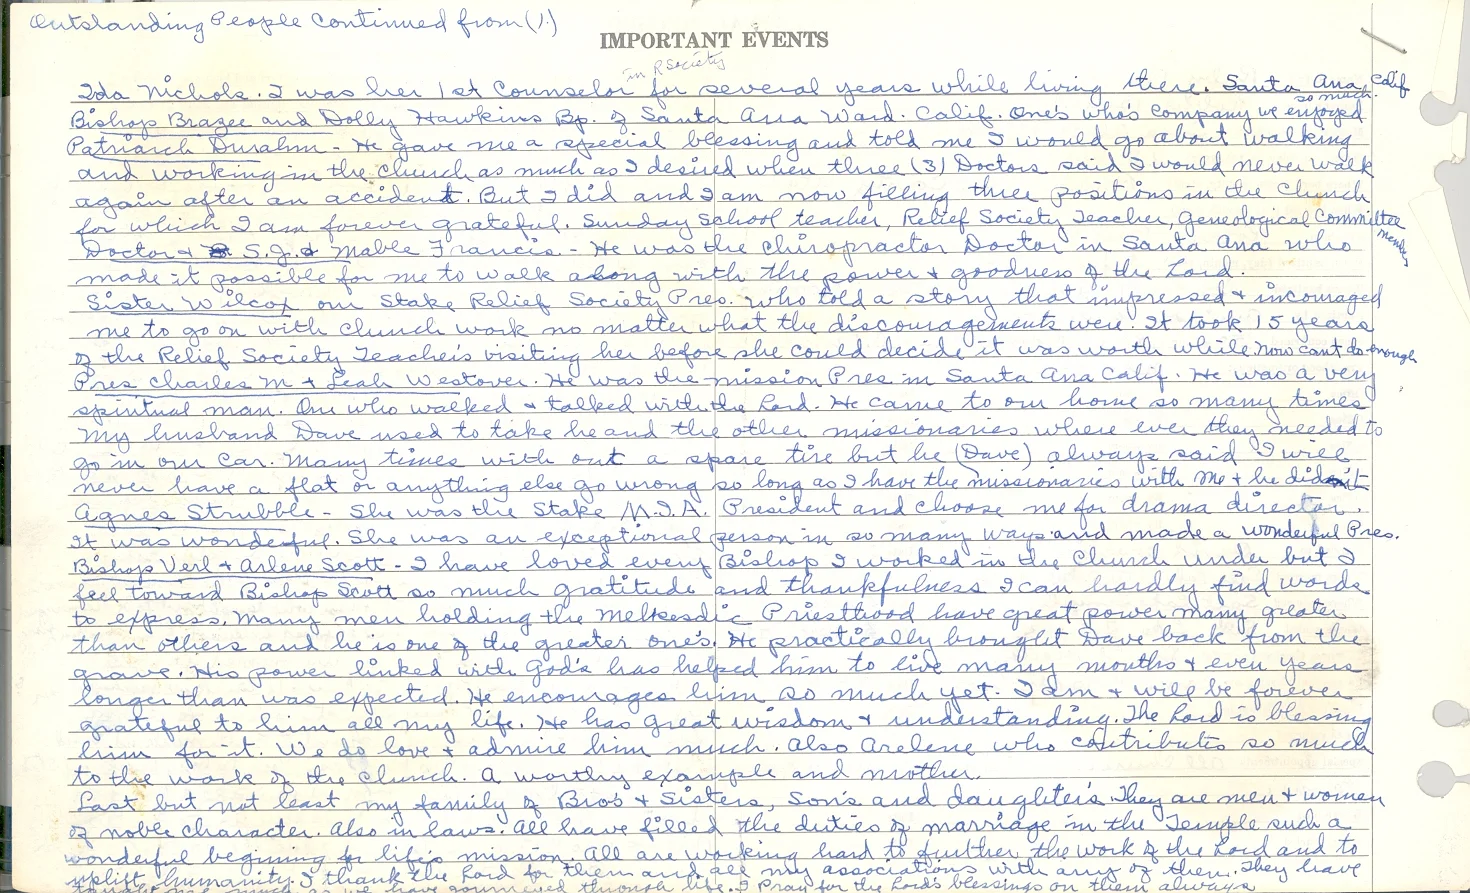 Outstanding People Continued from (1.)
IMPORTANT EVENTS
in R Society
Ida Nichols. I was her 1st Counselor for several years while living there. Santa Ana Calif
Bishop Brazee and Dolly Hawkins Bp. of Santa Ana Ward. Calif. One's who's company we enjoyed so much.
Patriarch - He gave me a special blessing and told me I would go about walking
and working in the church as much as I desired when three (3) Doctors said I would never walk
again after an accident. But I did and I am now filling three positions in the Church
for which I am forever grateful. Sunday School teacher, Relief Society Teacher, Geneological Committee member
Doctor & S.J. & Mable Francis - He was the chiropractor Doctor in Santa Ana who
made it possible for me to walk along with the power & goodness of the Lord.
Sister Wilcox our Stake Relief Society Pres. who told a story that impressed & incouraged
me to go on with church work no matter what the discouragements were. It took 15 years
of the Relief Society Teacher's visiting her before she could decide it was worth while. Now can't do enough
Pres Charles M & Leah Westover. He was the mission Pres in Santa Ana Calif. He was a very
spiritual man. One who walked & talked with the Lord. He came to our home so many times
My husband Dave used to take he and the other missionaries where ever they needed to
go in our car. Many times with out a spare tire but he (Dave) always said I will
never have a flat or anything else go wrong so long as I have the missionaries with me & he didn't
Agnes Strubble - She was the Stake M.I.A. President and choose me for drama director.
It was wonderful. She was an exceptional person in so many ways and made a wonderful Pres.
Bishop Verl & Arlene Scott - I have loved every Bishop I worked in the Church under but I
feel toward Bishop Scott so much gratitude and thankfulness I can hardly find words
to express. Many men holding the Melkesdic Priesthood have great power many greater
than others and he is one of the greater one's. He practically brought Dave back from the
grave. His power linked with God's has helped him to live many months & even years
longer than was expected. He encourages him so much yet. I am & will be forever
grateful to him all my life. He has great wisdom & understanding. The Lord is blessing
him for it. We do love & admire him much. Also Arelene who contributes so much
to the work of the church. A worthy example and mother.
Last but not least my family of Bro's & Sisters, Son's and daughter's. They are men & women
of noble character. Also in laws. All have filled the duties of marriage in the Temple such a
wonderful begining for life's mission. All are working hard to further the work of the Lord and to
uplift humanity. I thank the Lord for them and all my associations with any of them. They have
taught me much as we have journeyed through life. I Pray for the Lord's blessings on them always